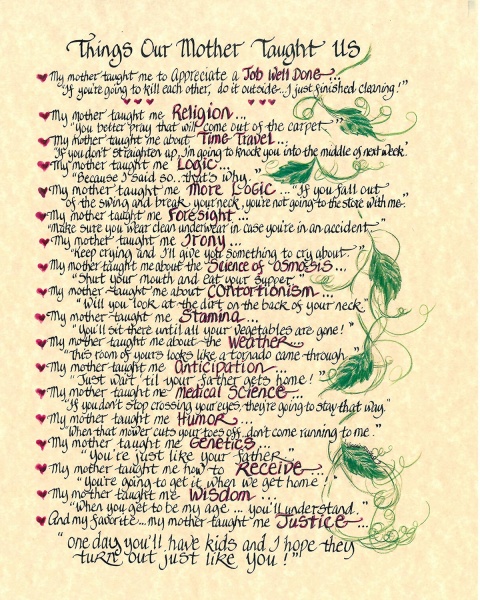 Things Our Mother Taught Us
My mother taught me to Appreciate a Job Well Done...
"If you're going to kill each other, do it outside...I just finished cleaning!"
My mother taught me Religion...
"you better pray that will come out of the carpet."
My mother taught me about Time Travel...
"If you don't straighten up, I'm going to knock you into the middle of next week."
My mother taught me Logic...
"Because I said so...that's why."
My mother taught me More Logic..."If you fall out
of the swing and break your neck, you're not going to the store with me."
My mother taught me Foresight...
"Make sure you wear clean underwear in case you're in an accident."
My mother taught me Irony...
"Keep crying and I'll give you something to cry about."
My mother taught me about the Science of Osmosis...
"Shut your mouth and eat your supper."
My mother taught me about Contortionism...
"Will you look at the dirt on the back of your neck."
My mother taught me Stamina...
"You'll sit there until all your vegetables are gone!"
My mother taught me about the Weather...
"This room of yours looks like a tornado came through."
My mother taught me Anticipation...
"Just wait 'til your father gets home!"
My mother taught me Medical Science...
"If you don't stop crossing your eyes, they're going to stay that way."
My mother taught me Humor...
"When that mower cuts your toes off, don't come running to me."
My mother taught me Genetics...
"You're just like your father."
My mother taught me how to Receive...
"You're going to get it when we get home!"
My mother taught me Wisdom...
"When you get to be my age ... you'll understand."
And my favorite...my mother taught me Justice...
"one day you'll have kids and I hope they
turn out just like you!"